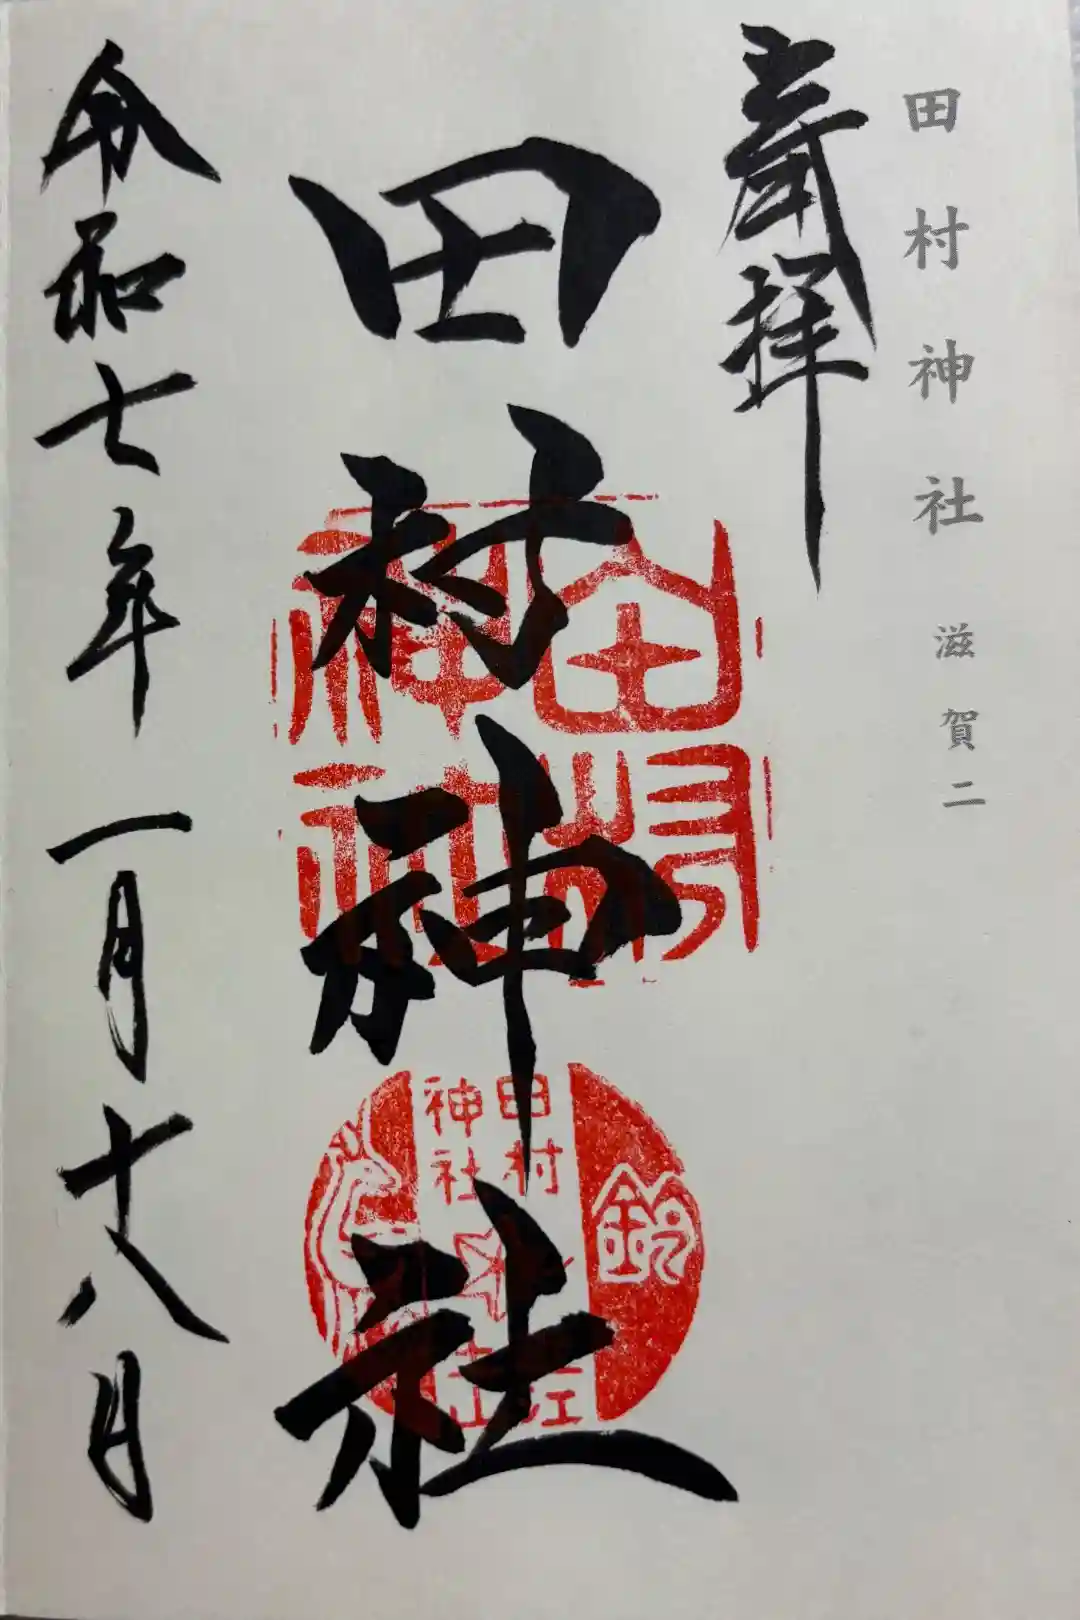 田村神社 滋賀二
奉拝
田村神社
令和七年一月十八日
田村
神社
鈴
田村
神社